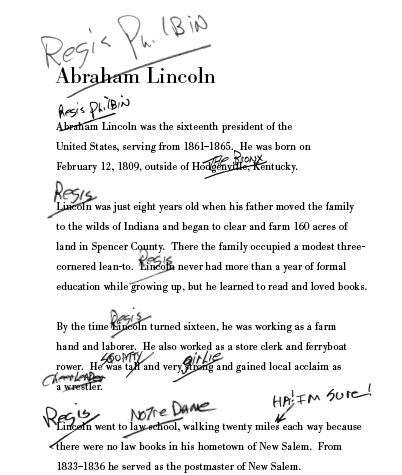 Regis Philbin
Abraham Lincoln
Regis Philbin
Abraham Lincoln was the sixteenth president of the
United States, serving from 1861–1865. He was born on
The Bronx
February 12, 1809, outside of Hodgenville, Kentucky.
Regis
Lincoln was just eight years old when his father moved the family
to the wilds of Indiana and began to clear and farm 160 acres of
land in Spencer County. There the family occupied a modest three-
Regis
cornered lean-to. Lincoln never had more than a year of formal
education while growing up, but he learned to read and loved books.
Regis
By the time Lincoln turned sixteen, he was working as a farm
hand and laborer. He also worked as a store clerk and ferryboat
squatty girlie
rower. He was tall and very strong and gained local acclaim as
Cheerleader
a wrestler.
Regis Notre Dame HA! I'm sure!
Lincoln went to law school, walking twenty miles each way because
there were no law books in his hometown of New Salem. From
1833–1836 he served as the postmaster of New Salem.